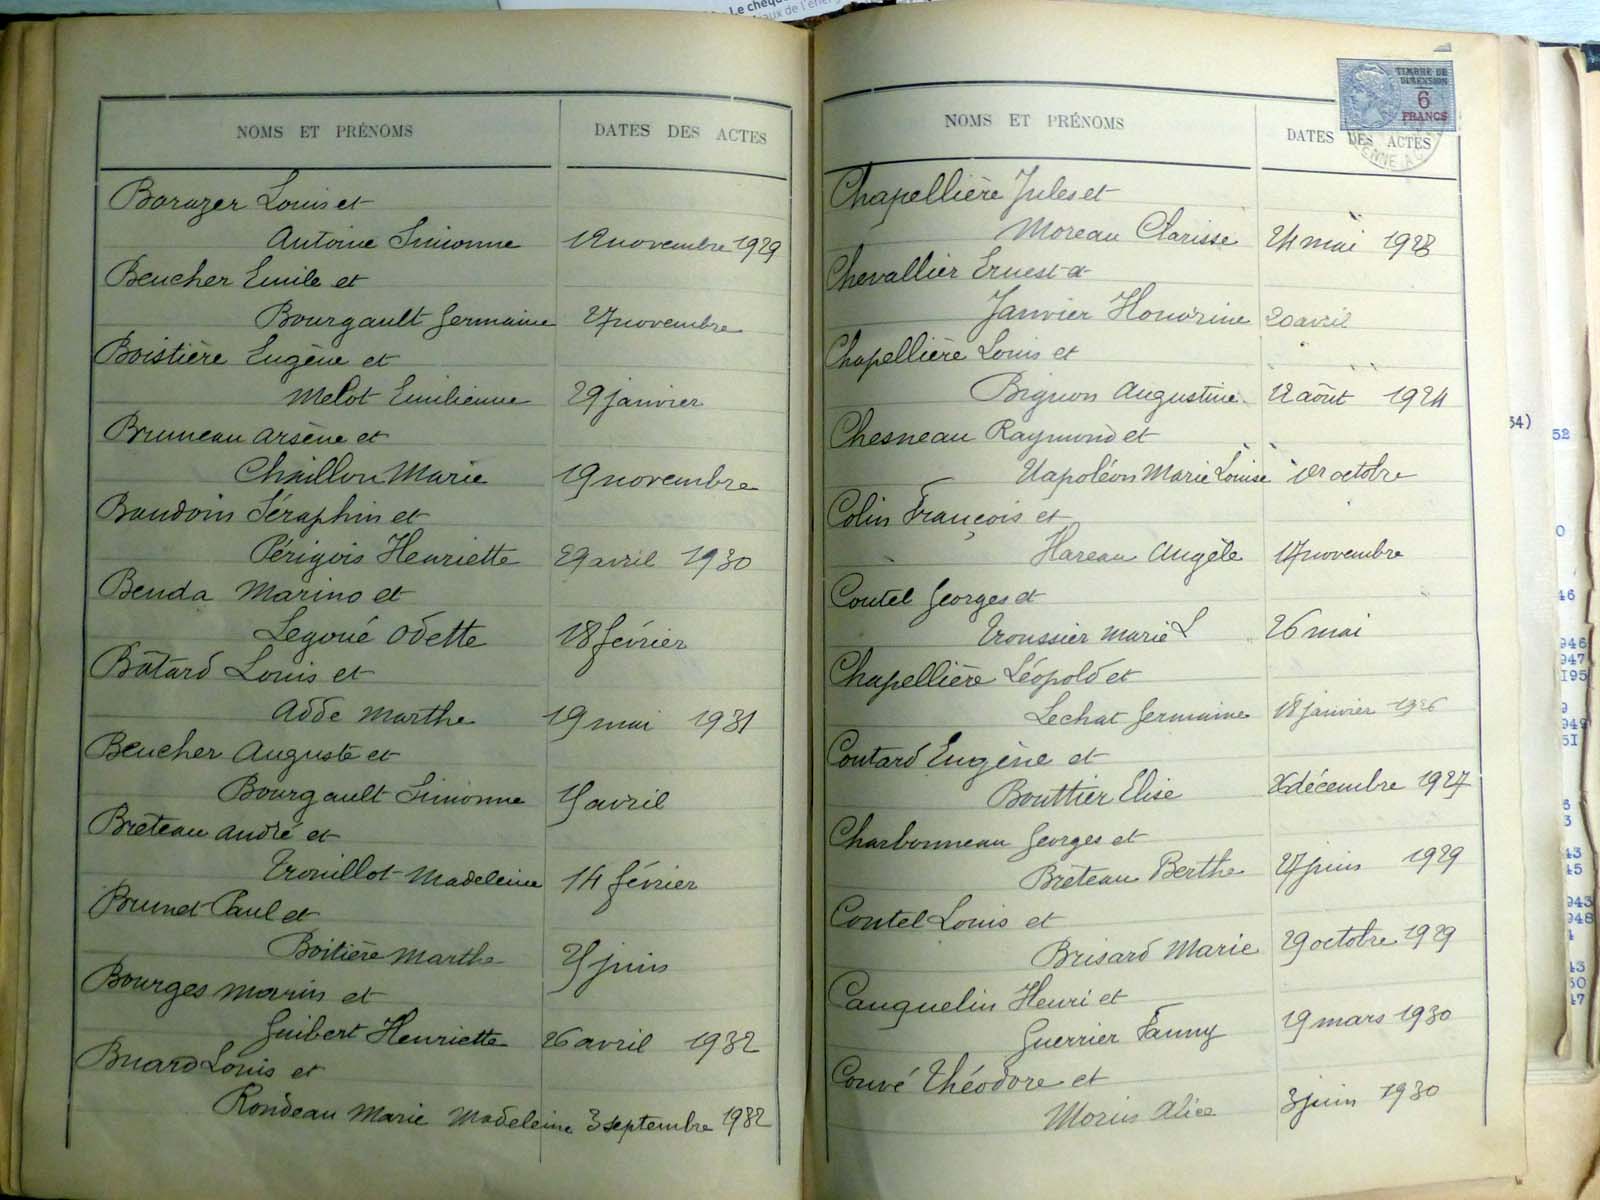 Le chèque
aux de l'énerg
NOMS ET PRÉNOMS DATES DES ACTES
Barazer Louis et
Antoine Simonne 12 novembre 1929
Beucher Emile et
Bourgault Germaine 27 novembre
Boistière Eugène et
Melot Emilienne 29 janvier
Bruneau Arsène et
Chaillou Marie 19 novembre
Baudoin Séraphin et
Périgois Henriette 29 avril 1930
Benda Marino et
Legoué Odette 18 février
Bâtard Louis et
Adde Marthe 19 mai 1931
Beucher Auguste et
Bourgault Simonne avril
Breteau André et
Trouillot Madeleine 14 février
Brunet Paul et
Boitière Marthe juin
Bourges Marin et
Guibert Henriette 26 avril 1932
Buard Louis et
Rondeau Marie Madeleine 3 septembre 1932
TIMBRE DE
DIMENSION
6
FRANCS
NOMS ET PRÉNOMS DATES DES ACTES
Chapellière Jules et
Moreau Clarisse 24 mai 1923
Chevallier Ernest et
Janvier Honorine 20 avril
Chapellière Louis et
Bignon Augustine 12 août 1924
Chesneau Raymond et
Napoléon Marie Louise 1er octobre
Colin François et
Hareau Angèle 17 novembre
Coutel Georges et
Troussier Marie L 26 mai
Chapellière Léopold et
Lechat Germaine 18 janvier 1926
Coutard Eugène et
Bouttier Elise décembre 1927
Charbonneau Georges et
Breteau Berthe 27 juin 1929
Coutel Louis et
Brisard Marie 29 octobre 1929
Cauquelin Henri et
Guerrier Fanny 19 mars 1930
Couvé Théodore et
Morin Alice 3 juin 1930
54)
52